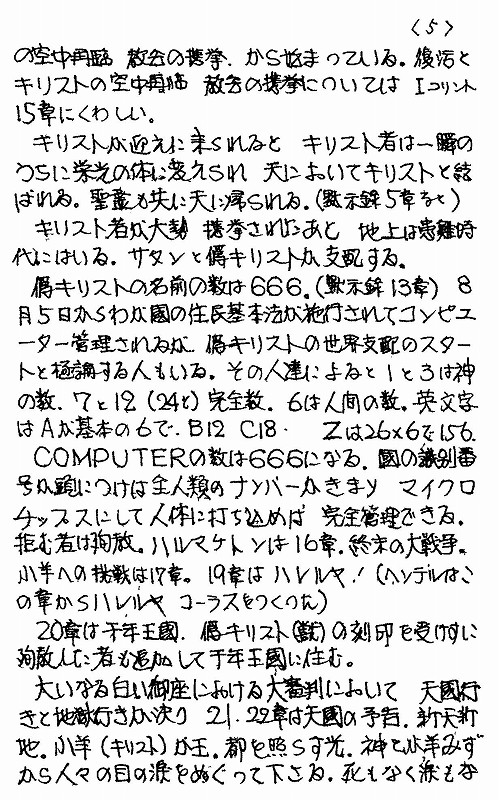 〈5〉
の空中再臨 教会の携挙、から始まっている。復活と
キリストの空中再臨 教会の携挙については Iコリント
15章にくわしい。
キリストが迎えに来られると キリスト者は一瞬の
うちに栄光の体に変えられ 天においてキリストと結
ばれる。聖霊も共に天に帰られる。(黙示録5章など)
キリスト者が大勢 携挙されたあと 地上は患難時
代にはいる。サタンと偽キリストが支配する。
偽キリストの名前の数は666。(黙示録13章) 8
月5日からわが國の住民基本法が施行されてコンピュ
ーター管理されるが、偽キリストの世界支配のスター
トと極論する人もいる。その人達によると1と3は神
の数、7と12(24も)完全数。6は人間の数。英文字
はAが基本の6で、B12 C18・ Zは26×6で156.
COMPUTERの数は666になる。國の識別番
号が頭につけば全人類のナンバーがきまり マイクロ
チップスにして人体に打ち込めば 完全管理できる。
拒む者は殉教。ハルマゲドンは16章。終末の大戦争。
小羊への挑戦は17章。19章はハレルヤ!(ヘンデルはこ
の章からハレルヤ コーラスをつくった)
20章は千年王國。偽キリスト(獣)の刻印を受けずに
殉教した者も追加して千年王國に住む。
大いなる白い御座における大審判において 天國行
きと地獄行きが決り 21.22章は天國の予告。新天新
地。小羊(キリスト)が王。都を照らす光。神と小羊みず
から人々の目の涙をぬぐって下さる。死もなく涙もな